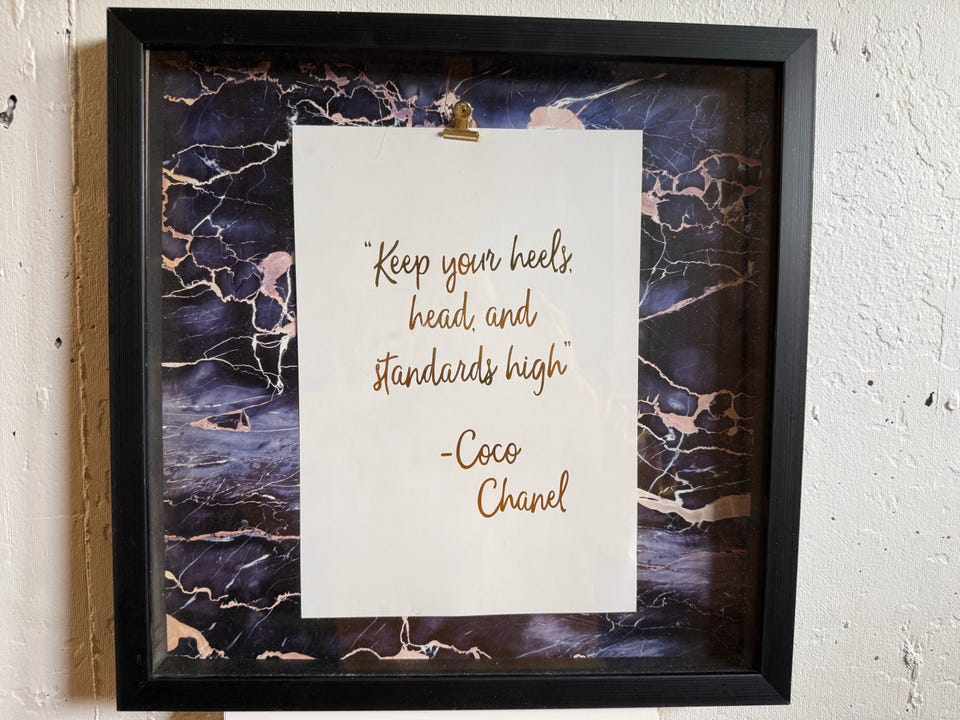 “Keep your heels,
head, and
standards high”
-Coco
Chanel